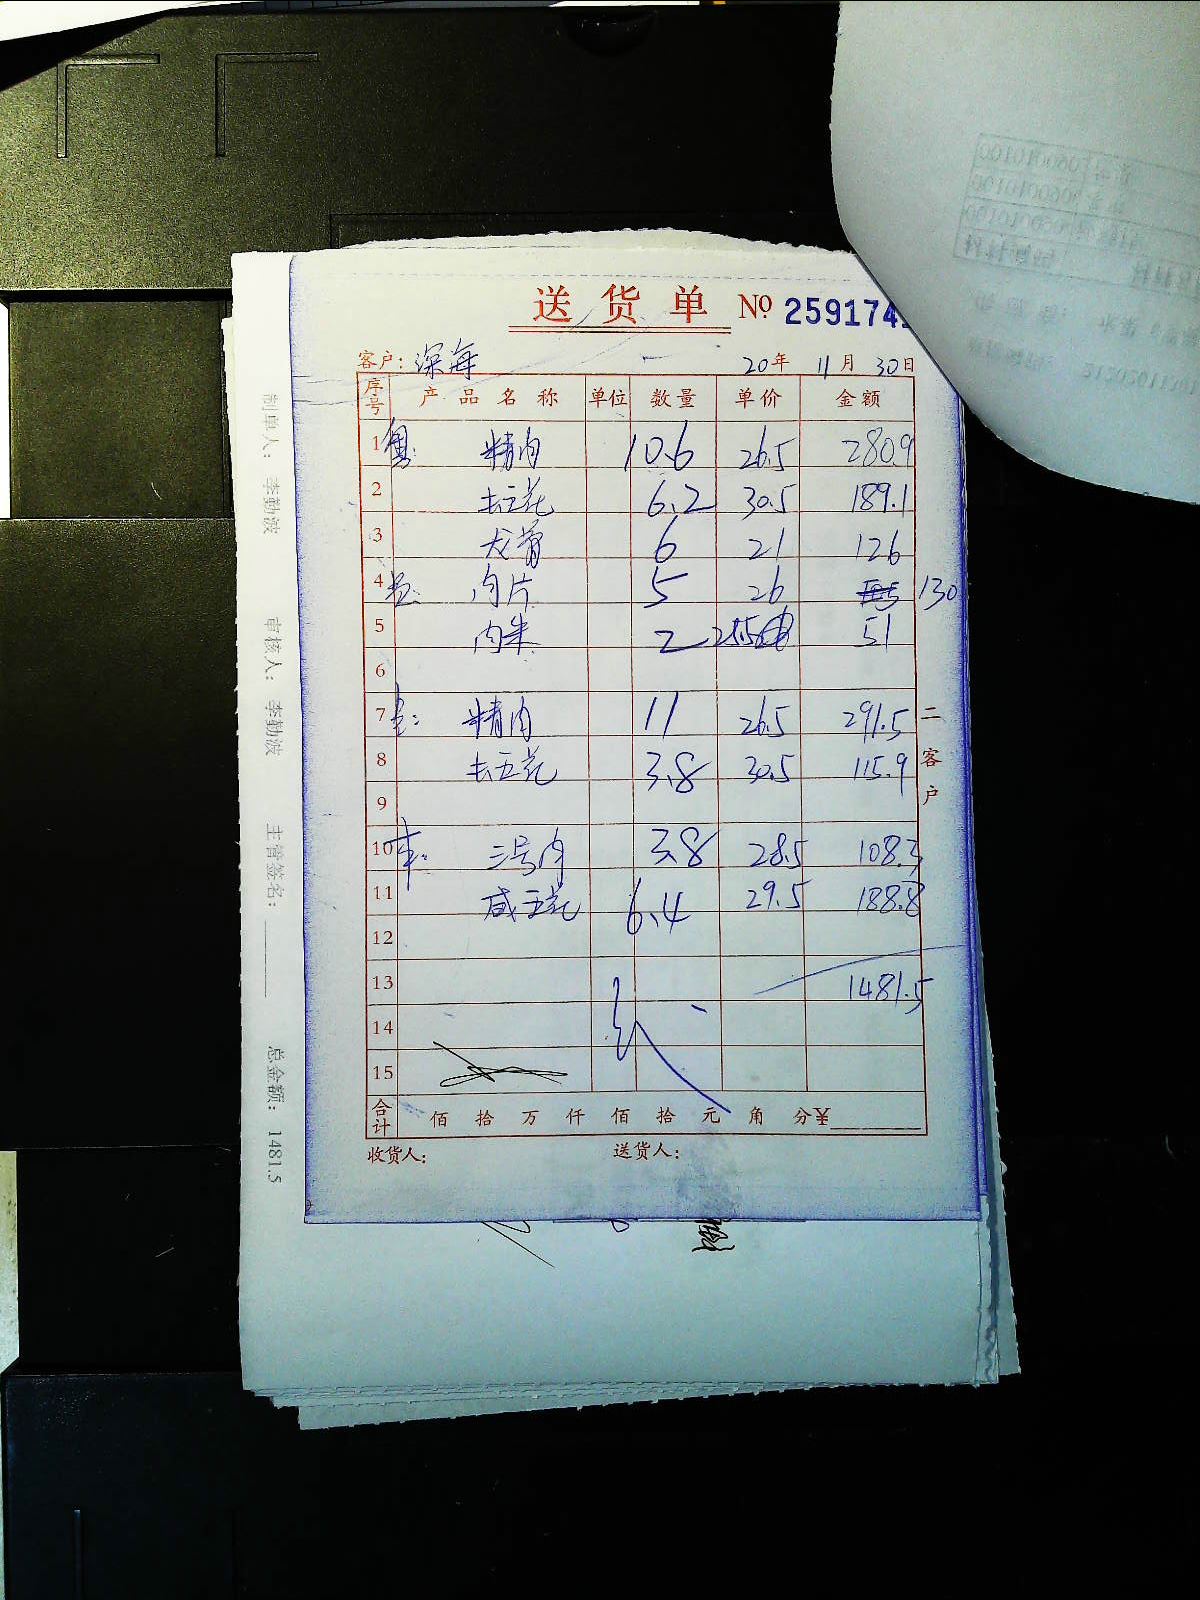 送货单 № 259174
客户: 深海 20年 11月 30日
序号 产品名称 单位 数量 单价 金额
1 粤: 精肉 10.6 26.5 280.9
2 去五花 6.2 30.5 189.1
3 龙骨 6 21 126
4 肉片 5 26 130
5 肉米 2 25.5 51
6
7 精肉 11 26.5 291.5
8 去五花 3.8 30.5 115.9
9
10 三号肉 3.8 28.5 108.3
11 咸五花 6.4 29.5 188.8
12
13 1481.5
14
15
合计 佰 拾 万 仟 佰 拾 元 角 分¥
收货人: 送货人:
二客户
制单人: 李勤波 审核人: 李勤波 主管签名: 总金额: 1481.5